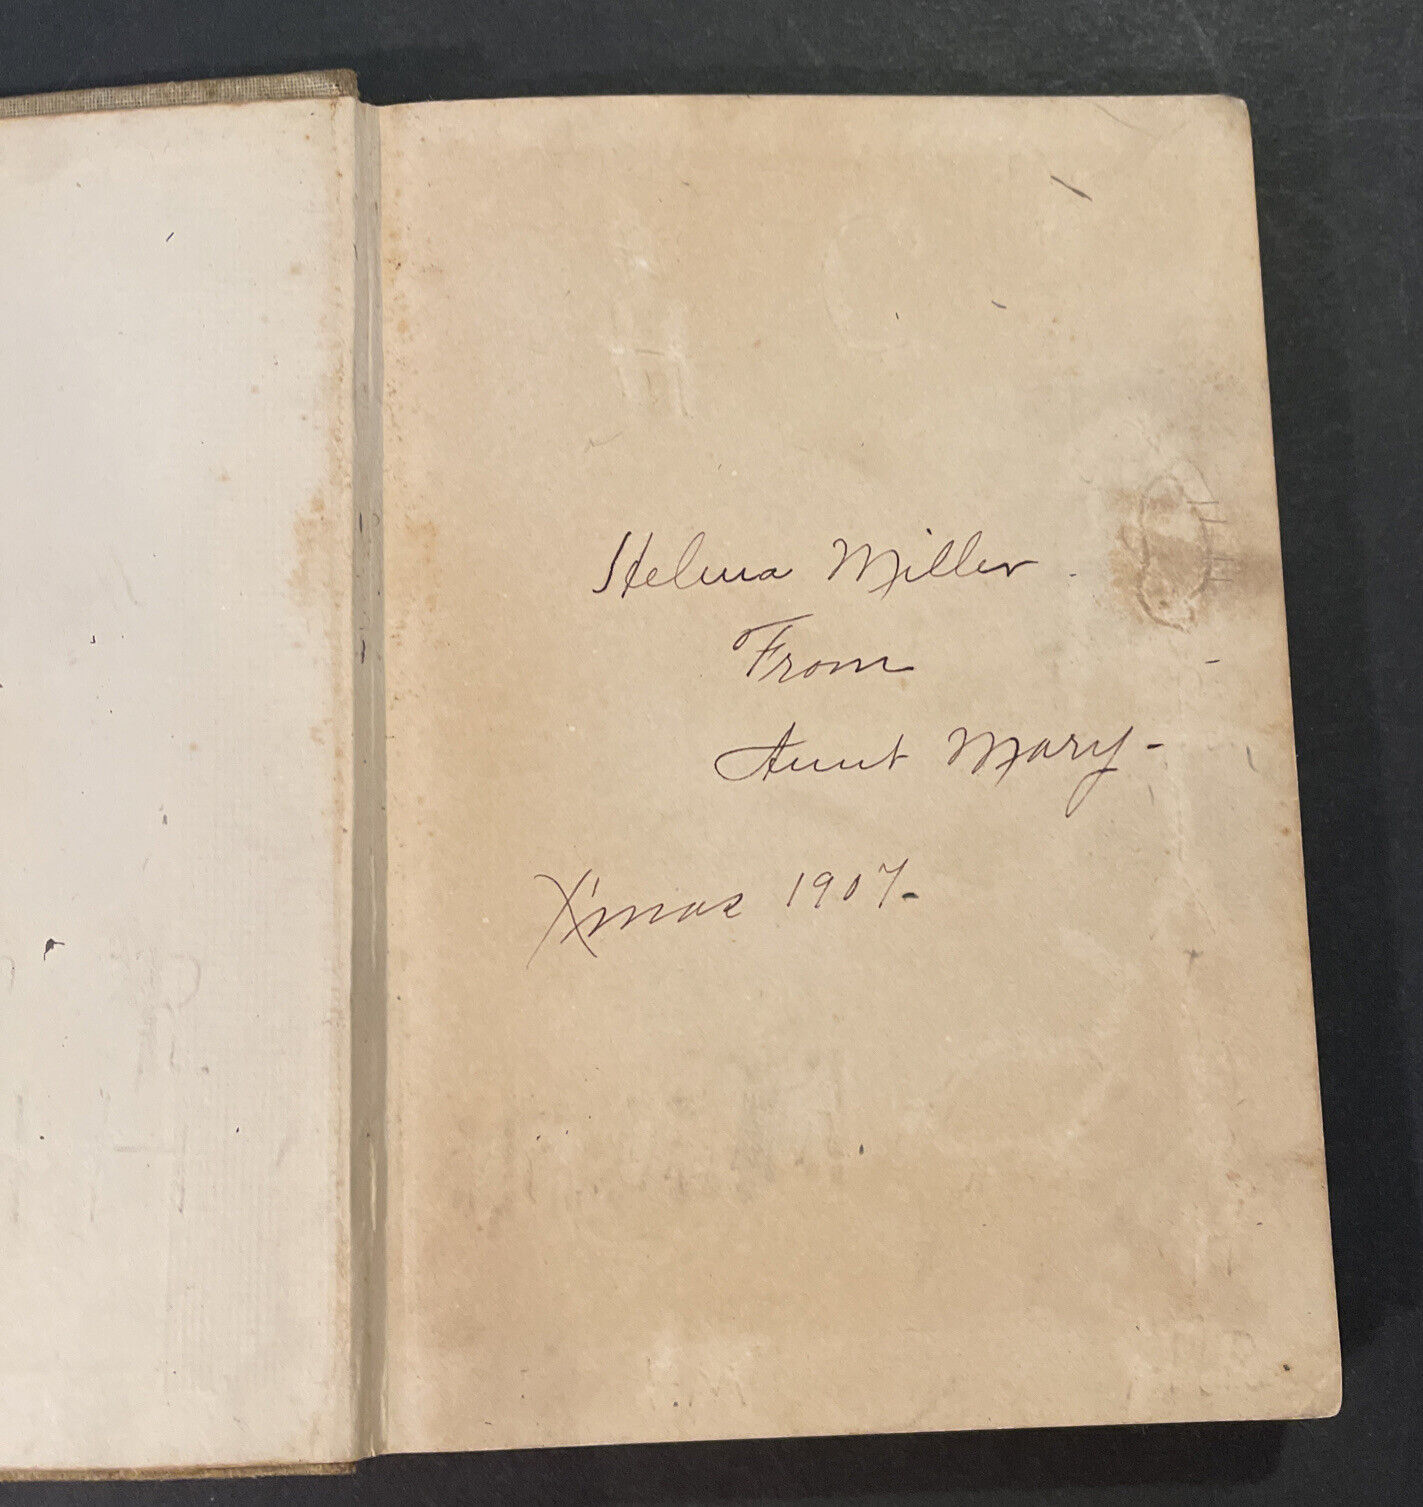 Helena Miller
From
Aunt Mary -
X'mas 1907-